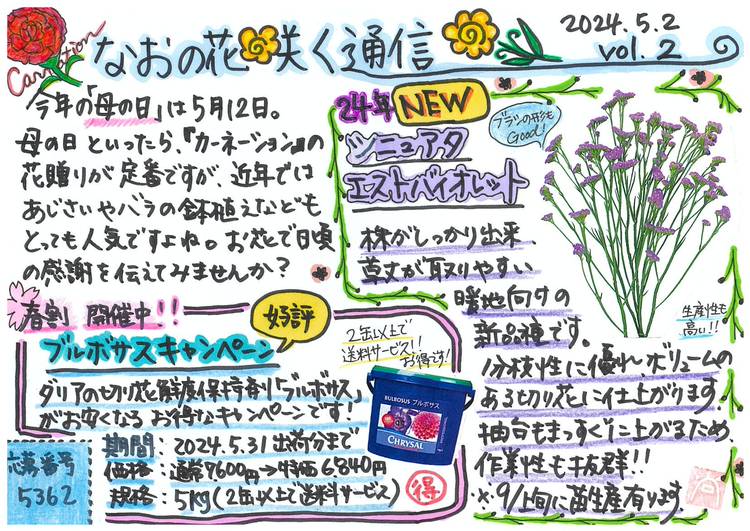 Carnation
なおの花咲く通信
2024.5.2
vol.2
今年の「母の日」は5月12日。
母の日といったら、『カーネーション』の
花贈りが定番ですが、近年では
あじさいやバラの鉢植えなども
とっても人気ですよね。お花で日頃
の感謝を伝えてみませんか?
24年 NEW
シニュアタ
エストバイオレット
ブラシの形も
Good!
株がしっかり出来、
草丈が取りやすい
暖地向けの
新品種です。
生産性も
高い!!
分枝性に優れ、ボリュームの
ある切り花に仕上がります。
抽台もまっすぐに上がるため、
作業性も抜群!!
※9/上旬に苗生産有ります。
春割 開催中!!
好評
ブルボサスキャンペーン
2缶以上で
送料サービス!!
お得です!
ダリアの切り花鮮度保持剤「ブルボサス」
がお安くなる お得なキャンペーンです!
BULBOSUS ブルボサス
CHRYSAL
期間:2024.5.31出荷分まで
価格:通常7600円→特価6840円
規格:5kg(2缶以上で送料サービス)
得
応募番号
5362